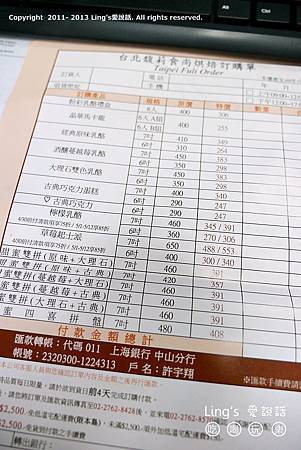 Copyright 2011- 2013 Ling's愛說話. All rights reserved.
台北馥莉食尚烘焙訂購單
Taipei Fuli Order
訂貨人 電話
收貨地址 手機
訂購產品 規格 原價 特價 數量
粉彩乳酪禮盒 8入 400 306
晶華馬卡龍 6入A組
6入B組 400 255
經典原味乳酪 6吋 300 255
7吋 410 349
酒釀蔓越莓乳酪 6吋 350 298
7吋 450 383
大理石雙色乳酪 6吋 350 298
7吋 450 383
古典巧克力蛋糕 6吋 350 298
7吋 400 340
♡古典巧克力 6吋 290 247
檸檬乳酪 6吋 290 247
7吋 460 345 / 391
草莓起士派 6吋 360 270 / 306
7吋 650 488 / 553
6吋 400 300 / 340
甜蜜雙拼(原味+大理石) 7吋 460 391
甜蜜雙拼(原味+古典) 7吋 460 391
蜜雙拼(蔓越莓+古典) 7吋 460 391
蜜雙拼(大理石+古典) 7吋 460 391
蜜四喜拼盤 7吋 480 408
付款金額總計
匯款轉帳：代碼 011 上海銀行 中山分行
帳號：2320300-1224313 戶名：許宇翔
※匯款手續費請
Ling's 愛說話
吃喝玩樂
轉出銀行：